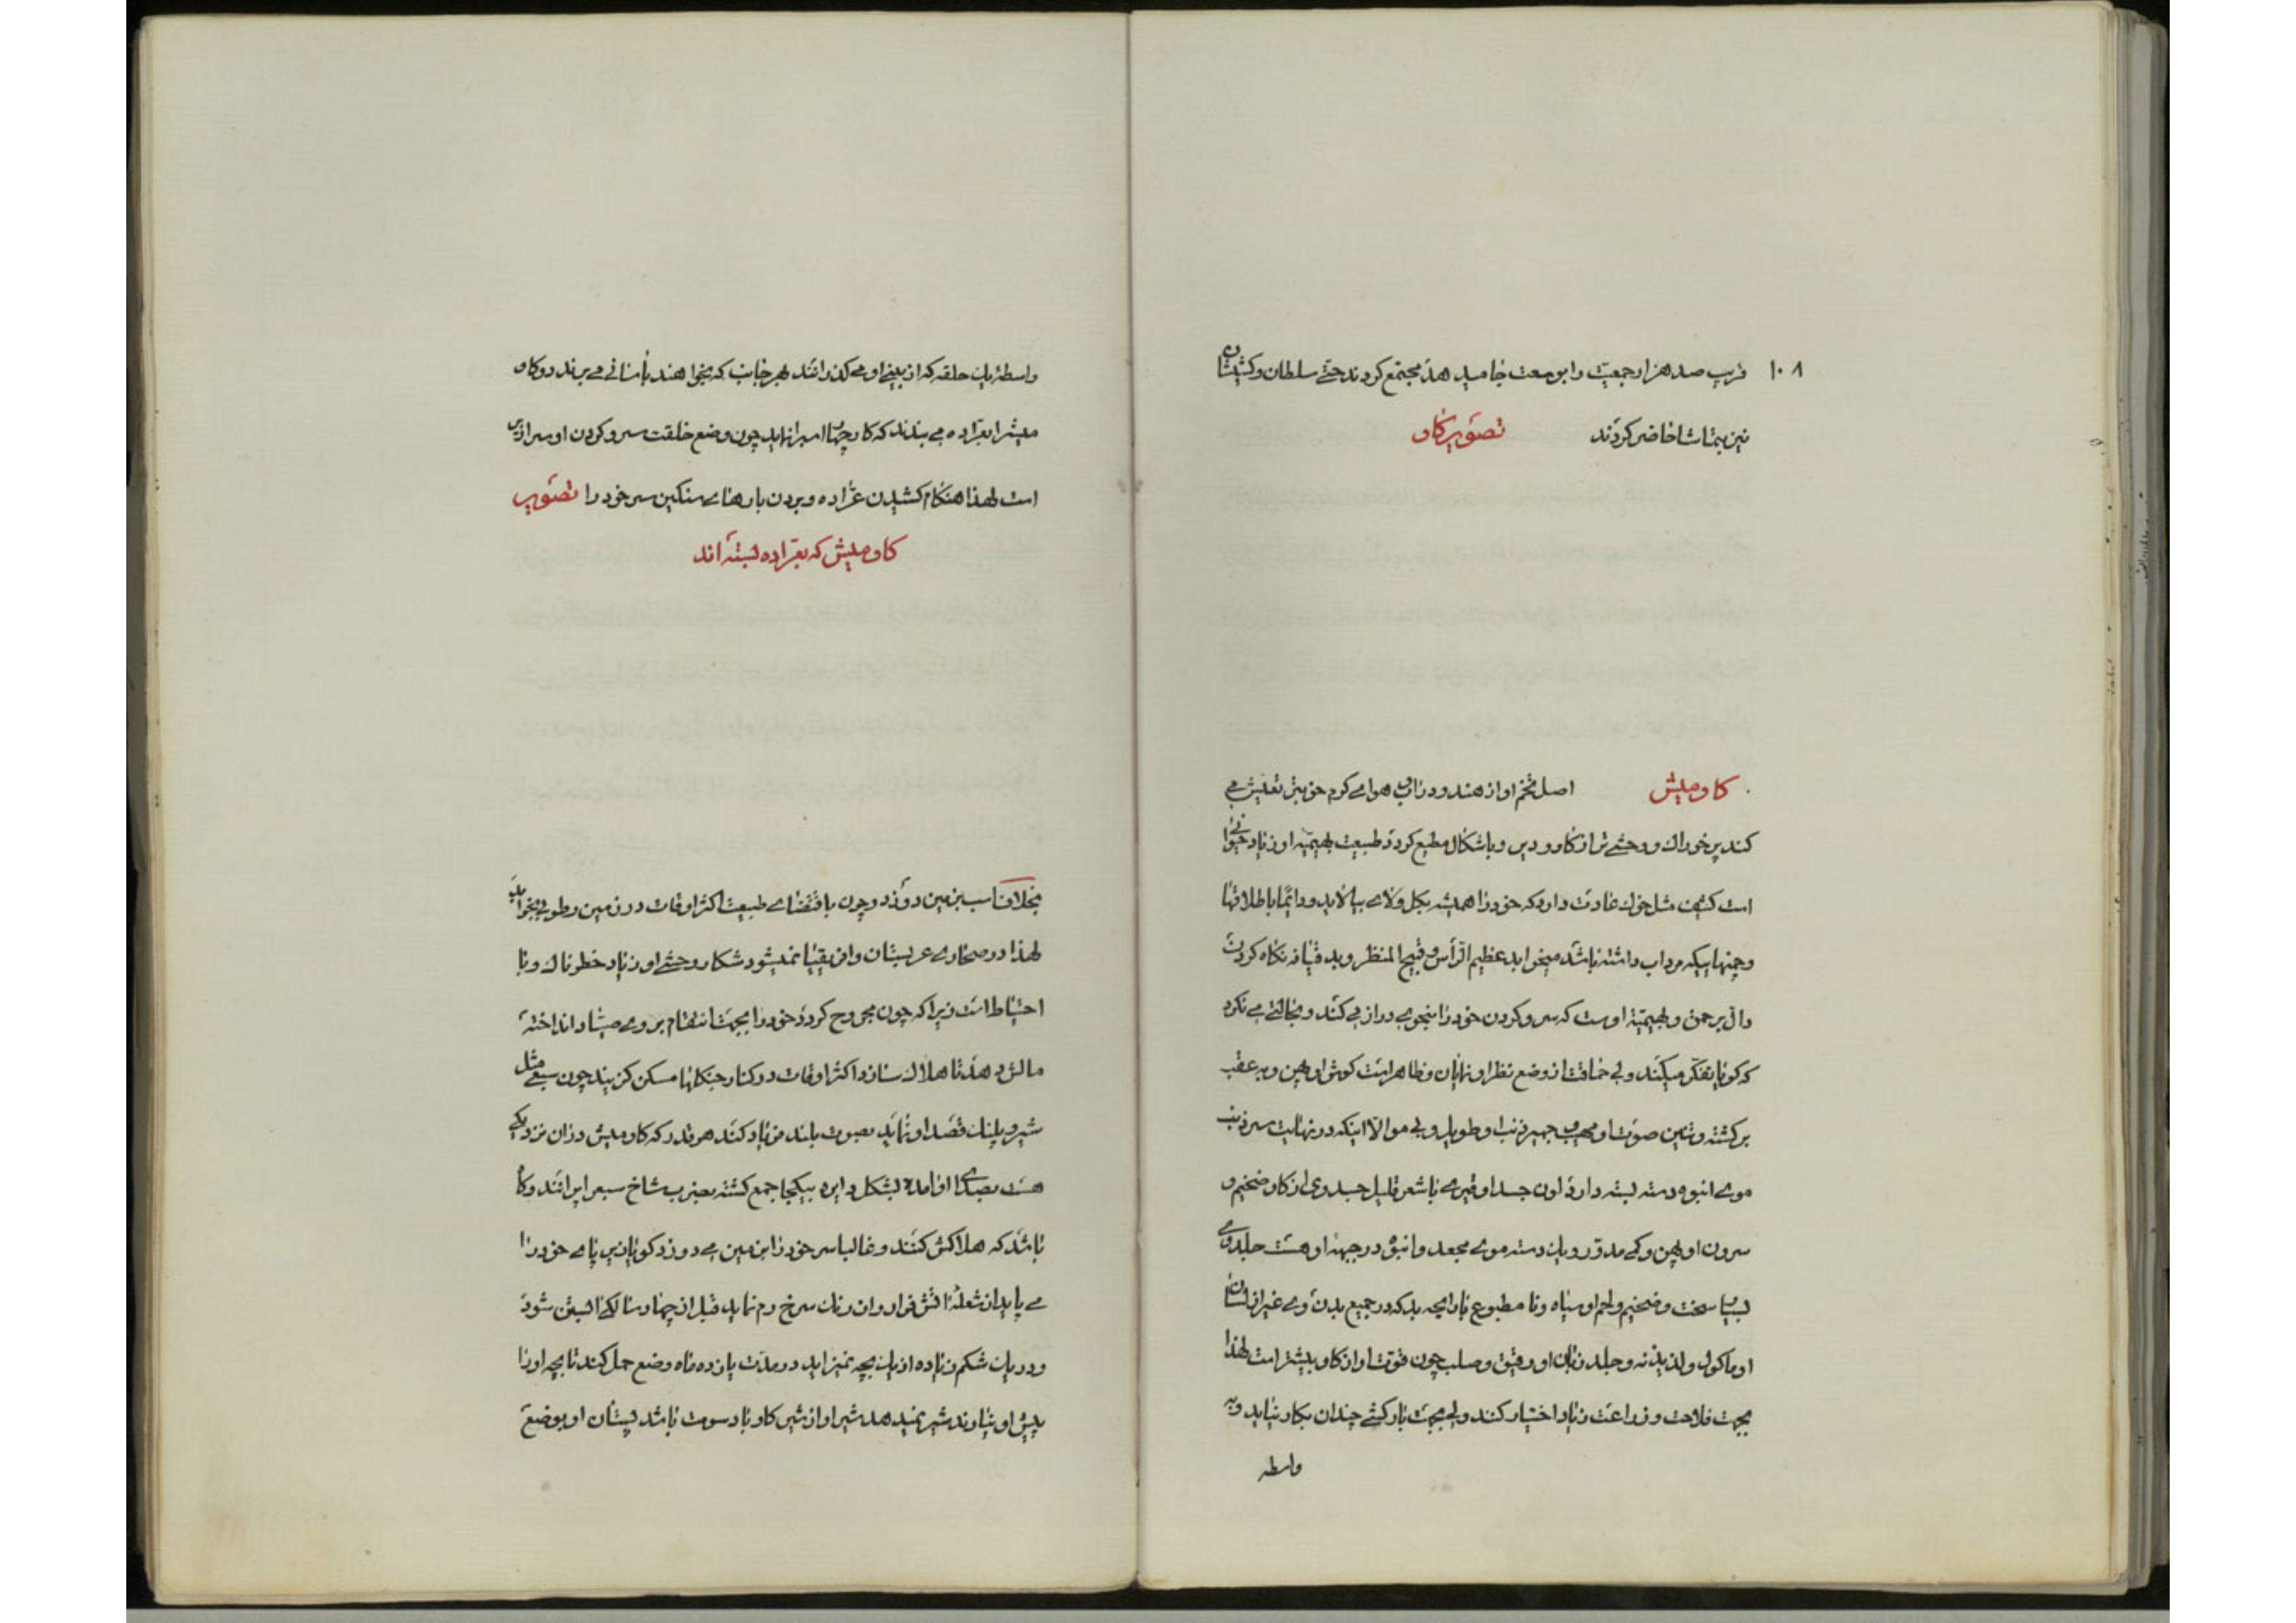 ۱۰۸ قریب صد هزار جمعیت را بوسعت جا میدهد مجتمع کردند حتی سلطان و کشیشان
نیز بتماشا حاضر کردند تصویر کاو
کاو میش اصل تخم او از هند و در هوای کرم خوبتر تعیش می
کند پر خوراک و وحشی تر از کاو و دیر و باشکال مطیع کردد طبیعت بهیمیه او زیاد حیوانی
است کثیف مثل خوک عادت دارد که خود را همیشه بکل و لای بیالاید و دائما باطلاقها
و چمنهاییکه مرداب داشته باشد میخوابد عظیم الرأس و قبیح المنظر و بد قیافه نکاه کردن
دال بر حمق و بهیمیة اوست که سر و کردن خود را بنحوی دراز می کند و بحالتی می نکرد
که کویا تفکر میکند ولی حماقت از وضع نظر او نمایان و ظاهر است کوش او پهن و به عقب
برکشته و تنین صوت او مهیب و جهیر ذنب او طویل و بی مو الا اینکه در نهایت سر ذنب
موی انبوه دسته بسته دارد لون جسد او قیری با شعر قلیل جسد وی از کاو ضخیم و
سرون او پهن و کمی مدور و یک دسته موی مجعد و انبوه در جبهه او هست جلد وی
بسیار سخت و ضخیم و لحم او سیاه و نا مطبوع با رایحه بد که در جمیع بدن وی غیر از لسان
او ماکول و لذیذ نه و جلد زبان او رقیق و صلب چون قوت او از کاو بیشتر است لهذا
بجهت فلاحت و زراعت زیاد اختیار کنند ولی بجهت بارکشی چندان بکار نیاید و به
واسطه
واسطۀ یک حلقه که از بینی او می کذرانند بهر جانب که بخواهند بآسانی می برند دو کاو
میش را بعراده می بندند که کار چهار اسب را نماید چون وضع خلقت سر و کردن او سرازیر
است لهذا هنکام کشیدن عراده و بردن بارهای سنکین سر خود را تصویر
کاو میش که بعراده بسته اند
بخلاف اسب بزمین دوزد و چون باقتضای طبیعت اکثر اوقات در زمین رطوبی بخوابد
لهذا در صحاری عربستان و افریقیا نمیشود شکار وحشی او زیاد خطرناک و با
احتیاط است زیرا که چون مجروح کردد خود را بجهت انتقام بروی صیاد انداخته
مالش دهد تا هلاک سازد اکثر اوقات در کنار جنکلها مسکن کزیند چون سبعی مثل
شیر و پلنک قصد او نماید بصوت بلند فریاد کند هر قدر که کاو میش در آن نزدیکی
هست بصدای او آمده بشکل دایره بیکجا جمع کشته بضرب شاخ سبع را برانند و کاه
باشد که هلاکش کنند و غالبا سر خود را بزمین می دوزد کویا زیر پای خود را
می پاید از شعلۀ آتش فرار و از رنک سرخ رم نماید قبل از چهار سالکی آبستن شود
و در یک شکم زیاده از یک بچه نمیزاید در مدت یازده ماه وضع حمل کند تا بچه او را
پیش او نیاورند شیر نمیدهد شیر او از شیر کاو با دسومت باشد پستان او بوضع